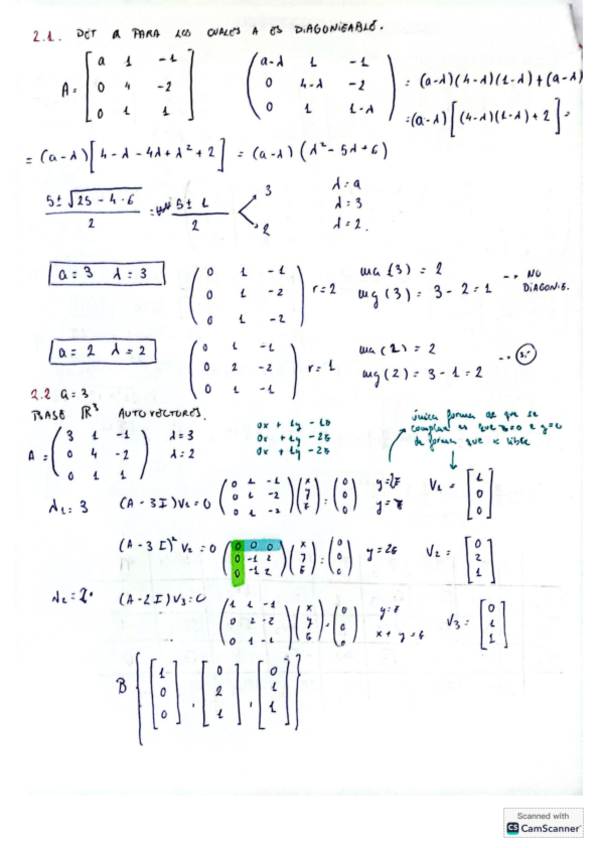 2.1. DET a PARA LOS CUALES A ES DIAGONIEABLE.
A = [a 1 -1; 0 4 -2; 0 1 1] (a-λ 1 -1; 0 4-λ -2; 0 1 1-λ) = (a-λ)(4-λ)(1-λ)+(a-λ)
=(a-λ)[(4-λ)(1-λ)+2]=
= (a-λ)[4-λ-4λ+λ²+2] = (a-λ)(λ²-5λ+6)
5±√25-4·6 / 2 = 5±1 / 2 3 2
λ=a
λ=3
λ=2.
a=3 λ=3 (0 1 -1; 0 1 -2; 0 1 -2) r=2 ma(3)=2 mg(3)=3-2=1 NO DIAGONIE.
a=2 λ=2 (0 1 -1; 0 2 -2; 0 1 -1) r=1 ma(2)=2 mg(2)=3-1=2
2.2 a=3
BASE ℝ³ AUTOVECTORES.
A=(3 1 -1; 0 4 -2; 0 1 1) λ=3 λ=2
única forma de que se
cumplan es que z=0 e y=0
de forma que x libre
λ1=3 (A-3I)V1=0 (0 1 -1; 0 1 -2; 0 1 -2)(x y z)=(0 0 0) V1=[1 0 0]
(A-3I)²V2=0 (0 0 0; 0 -1 2; 0 -1 2)(x y z)=(0 0 0) y=2z V2=[0 2 1]
λ2=2 (A-2I)V3=0 (1 1 -1; 0 2 -2; 0 1 -1)(x y z)=(0 0 0) y=z V3=[0 1 1]
B {[1 0 0], [0 2 1], [0 1 1]}
Scanned with
CS CamScanner